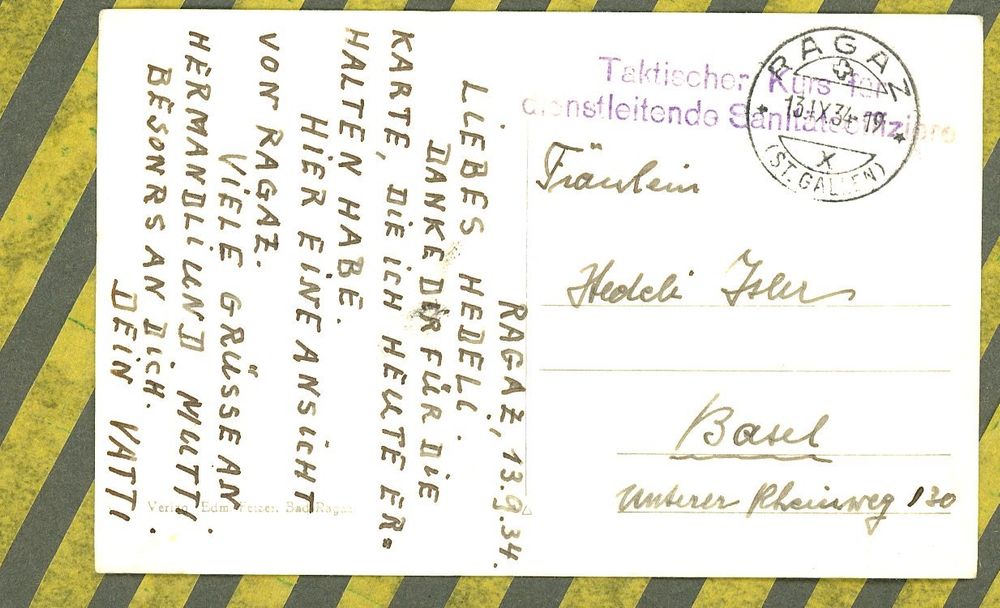 RAGAZ, 13.9.34.
LIEBES HEDELI.
DANKE DIR FÜR DIE
KARTE, DIE ICH HEUTE ER=
HALTEN HABE.
HIER EINE ANSICHT
VON RAGAZ.
VIELE GRÜSSE AN
HERMANDLI UND MUTTI.
BESONRS AN DICH.
DEIN VATTI.
Verlag Edm. Bad Ragaz
Taktischer Kurs für
dienstleitende Sanitätsoffiziere
RAGAZ
13.IX.34-19
X
(ST. GALLEN)
Fräulein
Hedeli Isler
Basel
Unterer Rheinweg 130